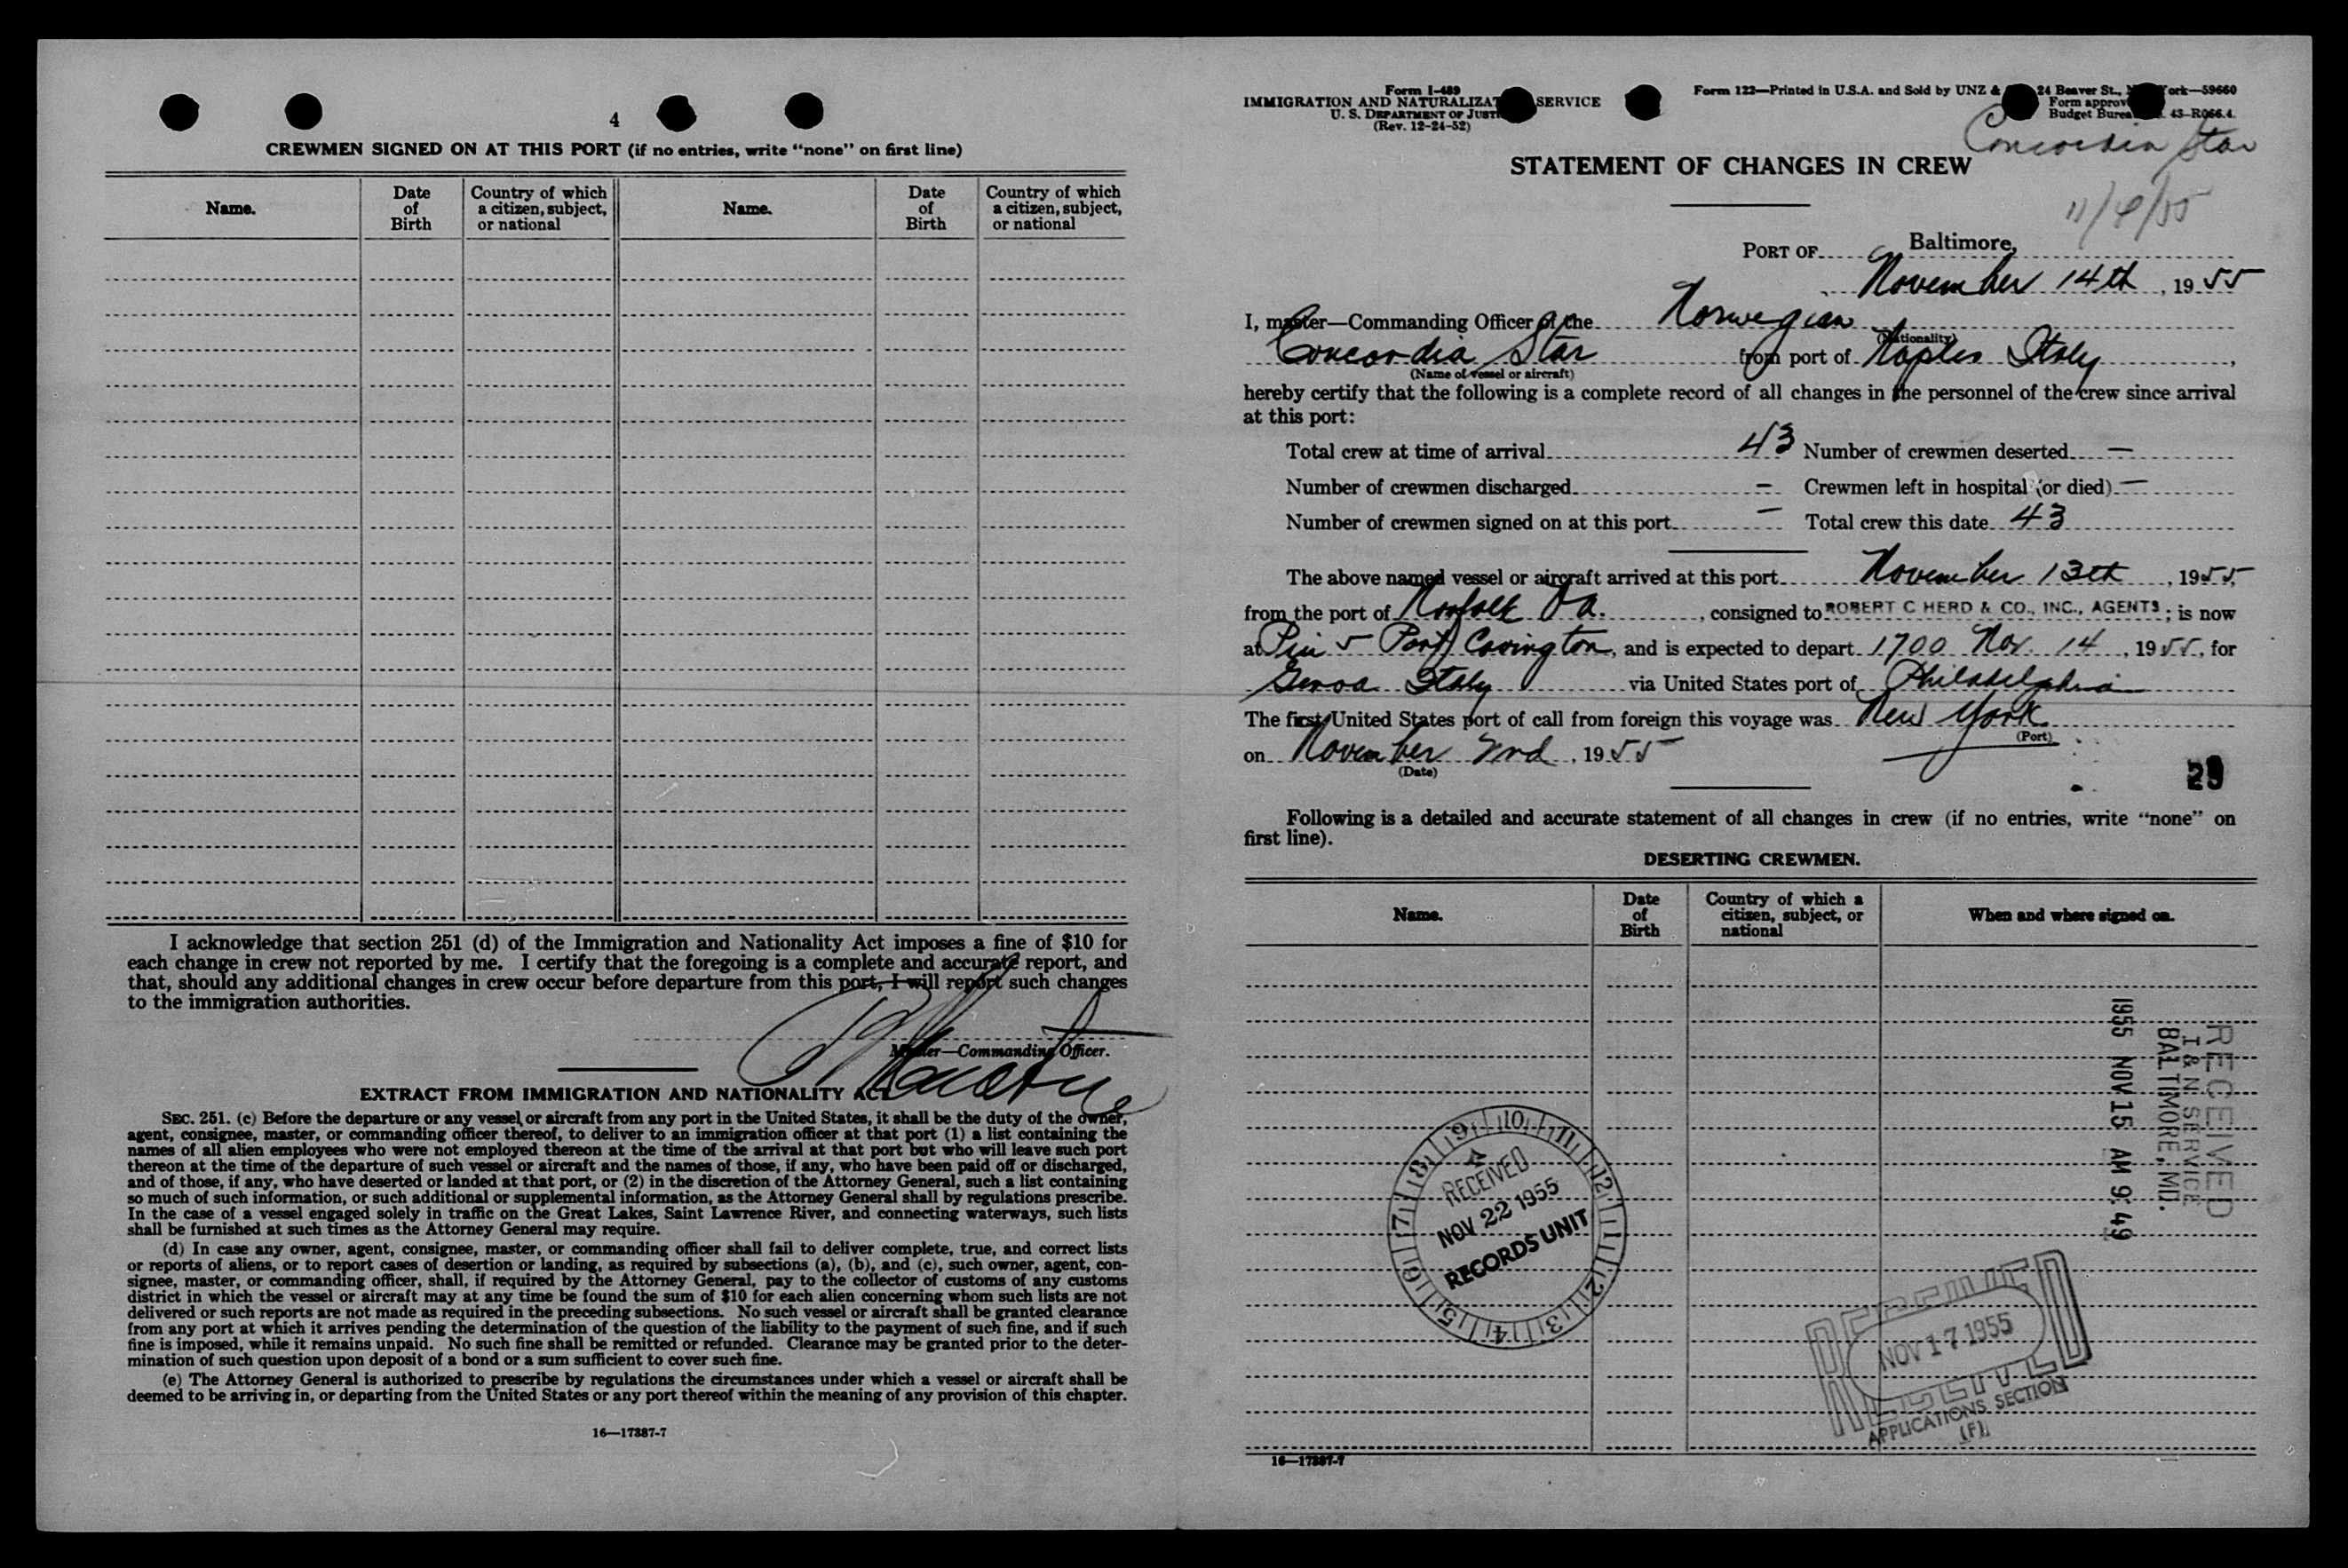 4
CREWMEN SIGNED ON AT THIS PORT (if no entries, write "none" on first line)
Name. Date of Birth Country of which a citizen, subject, or national Name. Date of Birth Country of which a citizen, subject, or national
I acknowledge that section 251 (d) of the Immigration and Nationality Act imposes a fine of $10 for
each change in crew not reported by me. I certify that the foregoing is a complete and accurate report, and
that, should any additional changes in crew occur before departure from this port, I will report such changes
to the immigration authorities.
Master—Commanding Officer.
EXTRACT FROM IMMIGRATION AND NATIONALITY ACT
SEC. 251. (c) Before the departure or any vessel or aircraft from any port in the United States, it shall be the duty of the owner,
agent, consignee, master, or commanding officer thereof, to deliver to an immigration officer at that port (1) a list containing the
names of all alien employees who were not employed thereon at the time of the arrival at that port but who will leave such port
thereon at the time of the departure of such vessel or aircraft and the names of those, if any, who have been paid off or discharged,
and of those, if any, who have deserted or landed at that port, or (2) in the discretion of the Attorney General, such a list containing
so much of such information, or such additional or supplemental information, as the Attorney General shall by regulations prescribe.
In the case of a vessel engaged solely in traffic on the Great Lakes, Saint Lawrence River, and connecting waterways, such lists
shall be furnished at such times as the Attorney General may require.
(d) In case any owner, agent, consignee, master, or commanding officer shall fail to deliver complete, true, and correct lists
or reports of aliens, or to report cases of desertion or landing, as required by subsections (a), (b), and (c), such owner, agent, con-
signee, master, or commanding officer, shall, if required by the Attorney General, pay to the collector of customs of any customs
district in which the vessel or aircraft may at any time be found the sum of $10 for each alien concerning whom such lists are not
delivered or such reports are not made as required in the preceding subsections. No such vessel or aircraft shall be granted clearance
from any port at which it arrives pending the determination of the question of the liability to the payment of such fine, and if such
fine is imposed, while it remains unpaid. No such fine shall be remitted or refunded. Clearance may be granted prior to the deter-
mination of such question upon deposit of a bond or a sum sufficient to cover such fine.
(e) The Attorney General is authorized to prescribe by regulations the circumstances under which a vessel or aircraft shall be
deemed to be arriving in, or departing from the United States or any port thereof within the meaning of any provision of this chapter.
16—17387-7
Form I-489
IMMIGRATION AND NATURALIZAT SERVICE
U. S. DEPARTMENT OF JUST
(Rev. 12-24-52)
Form 122—Printed in U.S.A. and Sold by UNZ & 24 Beaver St., ork—59660
Form approv
Budget Burea 43-R066.4.
Concordia Star
STATEMENT OF CHANGES IN CREW
PORT OF Baltimore,
November 14th, 1955
I, master—Commanding Officer of the Norwegian
(Nationality)
Concordia Star from port of Naples Italy,
(Name of vessel or aircraft)
hereby certify that the following is a complete record of all changes in the personnel of the crew since arrival
at this port:
Total crew at time of arrival 43 Number of crewmen deserted —
Number of crewmen discharged — Crewmen left in hospital (or died) —
Number of crewmen signed on at this port — Total crew this date 43
The above named vessel or aircraft arrived at this port November 13th, 1955,
from the port of Norfolk Va., consigned to ROBERT C HERD & CO., INC., AGENTS; is now
at Pier 5 Port Covington, and is expected to depart 1700 Nov. 14, 1955, for
Genoa Italy via United States port of Philadelphia
The first United States port of call from foreign this voyage was New York
(Port)
on November 2nd, 1955
(Date)
Following is a detailed and accurate statement of all changes in crew (if no entries, write "none" on
first line).
DESERTING CREWMEN.
Name. Date of Birth Country of which a citizen, subject, or national When and where signed on.
RECEIVED
I & N SERVICE
BALTIMORE, MD.
1955 NOV 15 AM 9:49
9 10 11 12 1 2 3 4 5 6 7 8
RECEIVED
NOV 22 1955
RECORDS UNIT
RECEIVED
NOV 17 1955
APPLICATIONS SECTION
(F)
16—17387-7